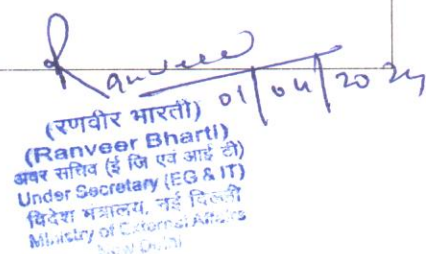 Ranveer
01/04/2024
(रणवीर भारती)
(Ranveer Bharti)
अवर सचिव (ई जि एवं आई टी)
Under Secretary (EG & IT)
विदेश मंत्रालय, नई दिल्ली
Ministry of External Affairs
New Delhi